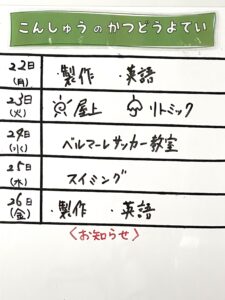 こんしゅうのかつどうよてい
22日(月) ・製作 ・英語
23日(火) 屋上 リトミック
24日(水) ベルマーレサッカー教室
25日(木) スイミング
26日(金) ・製作 ・英語
〈お知らせ〉